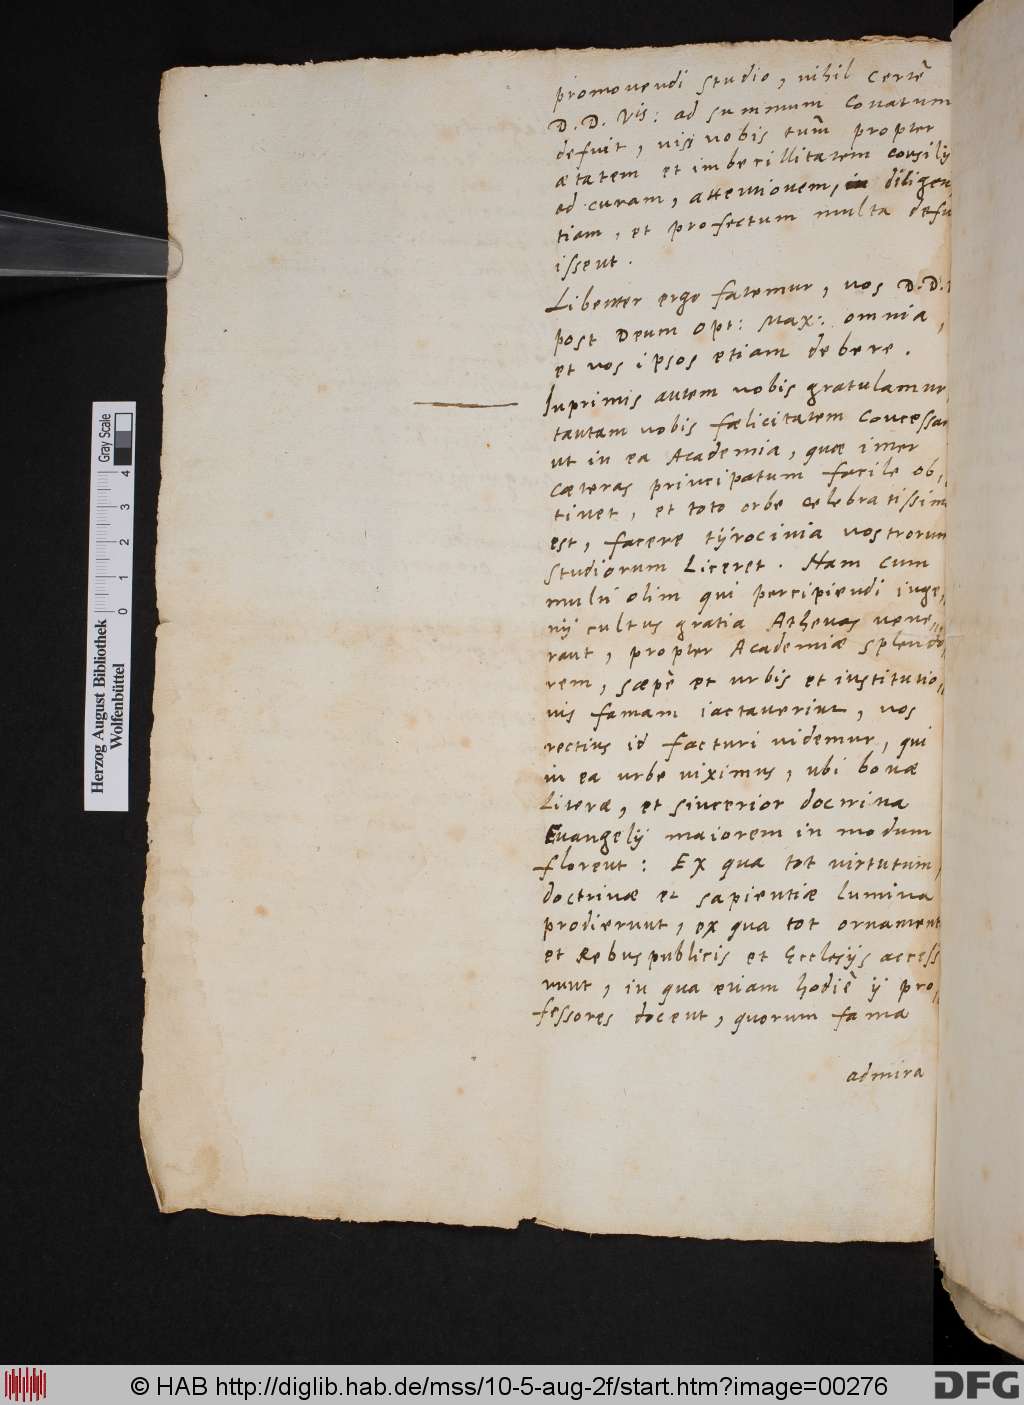 promovendi studio, nihil certè
D. D. Vis: ad summum conatum
defuit, nisi nobis tum propter
ætatem et imbecillitatem consilij
ad curam, attentionem, diligen
tiam, et profectum multa defu
issent.
Libenter ergo fatemur, nos D. D.
post Deum Opt: Max: omnia,
et nos ipsos etiam debere.
Inprimis autem nobis gratulamur,
tantam nobis fælicitatem concessam
ut in ea Academia, quæ inter
cæteras principatum facile ob,,
tinet, et toto orbe celebratissima
est, facere tÿrocinia nostrorum
studiorum liceret. Nam cum
multi olim qui percipiendi inge,,
nij cultus gratia Athenas vene,,
rant, propter Academiæ splendo,,
rem, sæpè et urbis et institutio,,
nis famam iactaverint, nos
rectius id facturi videmur, qui
in ea urbe viximus, ubi bonæ
literæ, et sincerior doctrina
Evangelij maiorem in modum
florent: Ex qua tot virtutum,
doctrinæ et sapientiæ lumina
prodierunt, ex qua tot ornament
et Rebuspublicis et Ecclesijs access
runt, in qua etiam hodiè ij pro,,
fessores docent, quorum fama
admira
Herzog August Bibliothek
Wolfenbüttel
0 1 2 3 4
Gray Scale
© HAB http://diglib.hab.de/mss/10-5-aug-2f/start.htm?image=00276
DFG